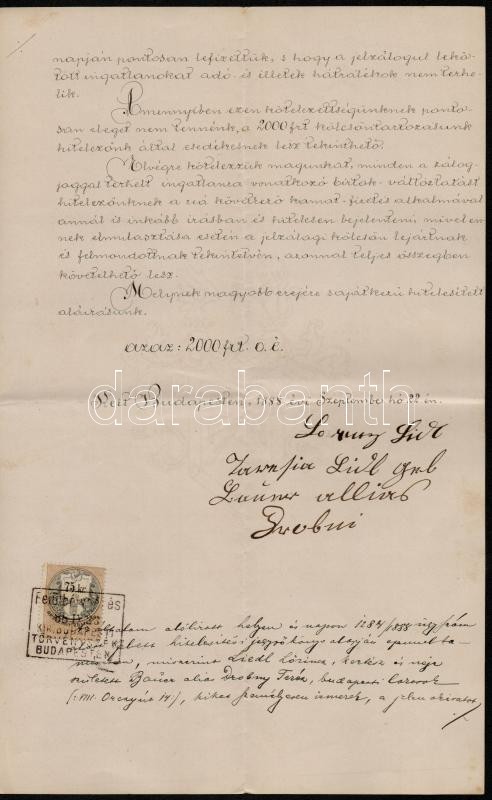 napján pontosan lefizettük, s hogy a jelzálogul lekö-
tött ingatlanokat adó- és illeték hátralékok nem terhe-
lik.
Amennyiben ezen kötelezettségünknek ponto-
san eleget nem tennénk, a 2000 frt kölcsöntartozásunk
hitelezőnk által esedékesnek lesz tekinthető.
Elvégre kötelezzük magunkat, minden a zálog-
joggal terhelt ingatlanra vonatkozó birtok-változtatást
hitelezőnknek a reá következő kamat-fizetés alkalmával
annál is inkább írásban és hitelesen bejelenteni, mivel en-
nek elmulasztása esetén a jelzálogi kölcsön lejártnak
és felmondottnak tekintetvén, azonnal teljes összegben
követelhető lesz.
Melynek nagyobb erejére sajátkezű hitelesített
aláírásunk.
azaz: 2000 frt. o. é.
Kelt Budapesten, 1885 évi Szeptember hó 22 én.
darabanth
Lorenz Lidl
Taresia Lidl geb
Bauer allias
Drobni
75 kr.
TÖRVÉNYSZÉK
BUDAPESTEN
alólírott helyen és napon 1284/1885 ügyszám
hitelesítési jegyzőkönyv alapján
miszerint Liedl Lőrincz, kertész és neje
született Bauer alias Drobny Teréz, budapesti lakosok
(VIII. Orczyút 14.), kiket személyesen ismerek, a jelen okiratot